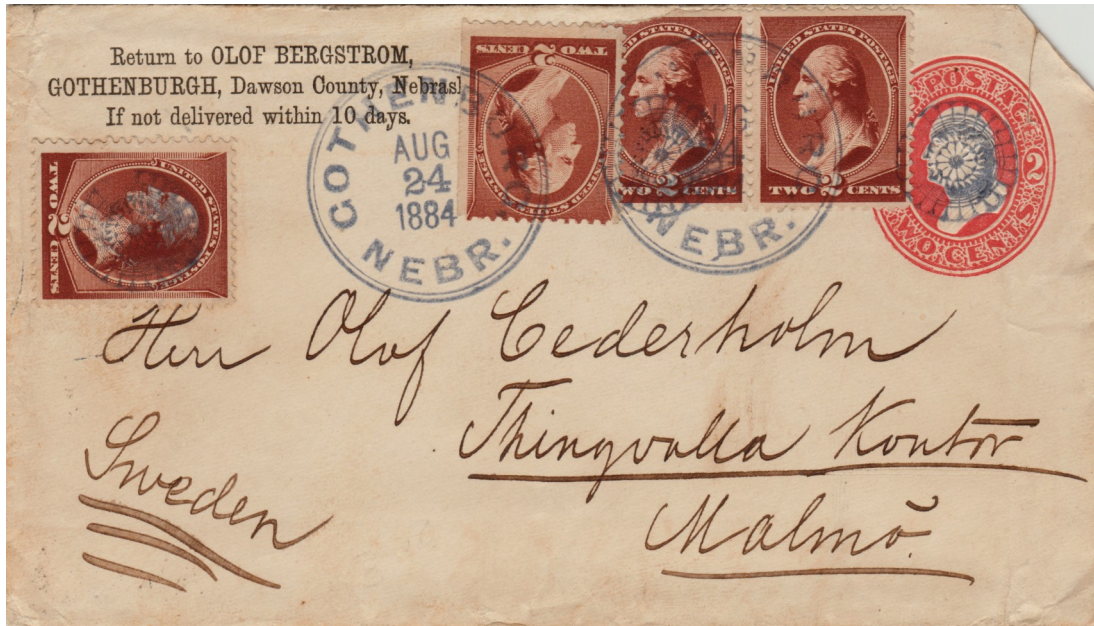 Return to OLOF BERGSTROM,
GOTHENBURGH, Dawson County, Nebras
If not delivered within 10 days.
GOTHENBURG,
AUG
24
1884
NEBR.
TWO 2 CENTS
UNITED STATES POSTAGE
TWO 2 CENTS
UNITED STATES POSTAGE
TWO 2 CENTS
NEBR.
POSTAGE
2
TWO CENTS
UNITED STATES POSTAGE
TWO 2 CENTS
Herr Olof Cederholm
Thingvalla Kontor
Malmö.
Sweden